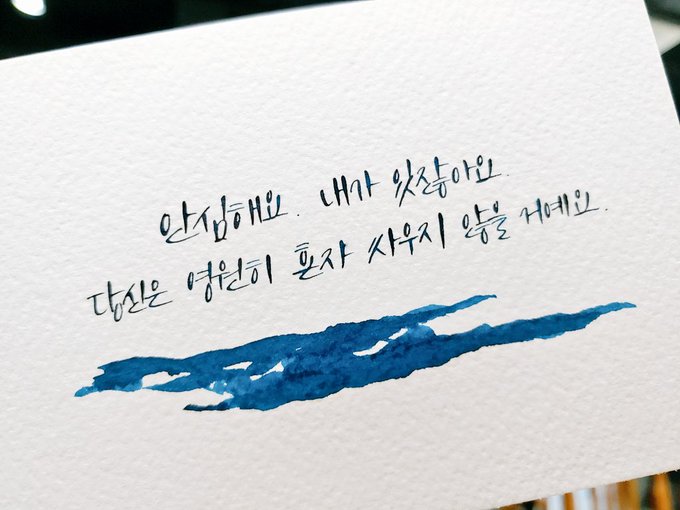 안심해요. 내가 있잖아요.
당신은 영원히 혼자 싸우지 않을 거예요.